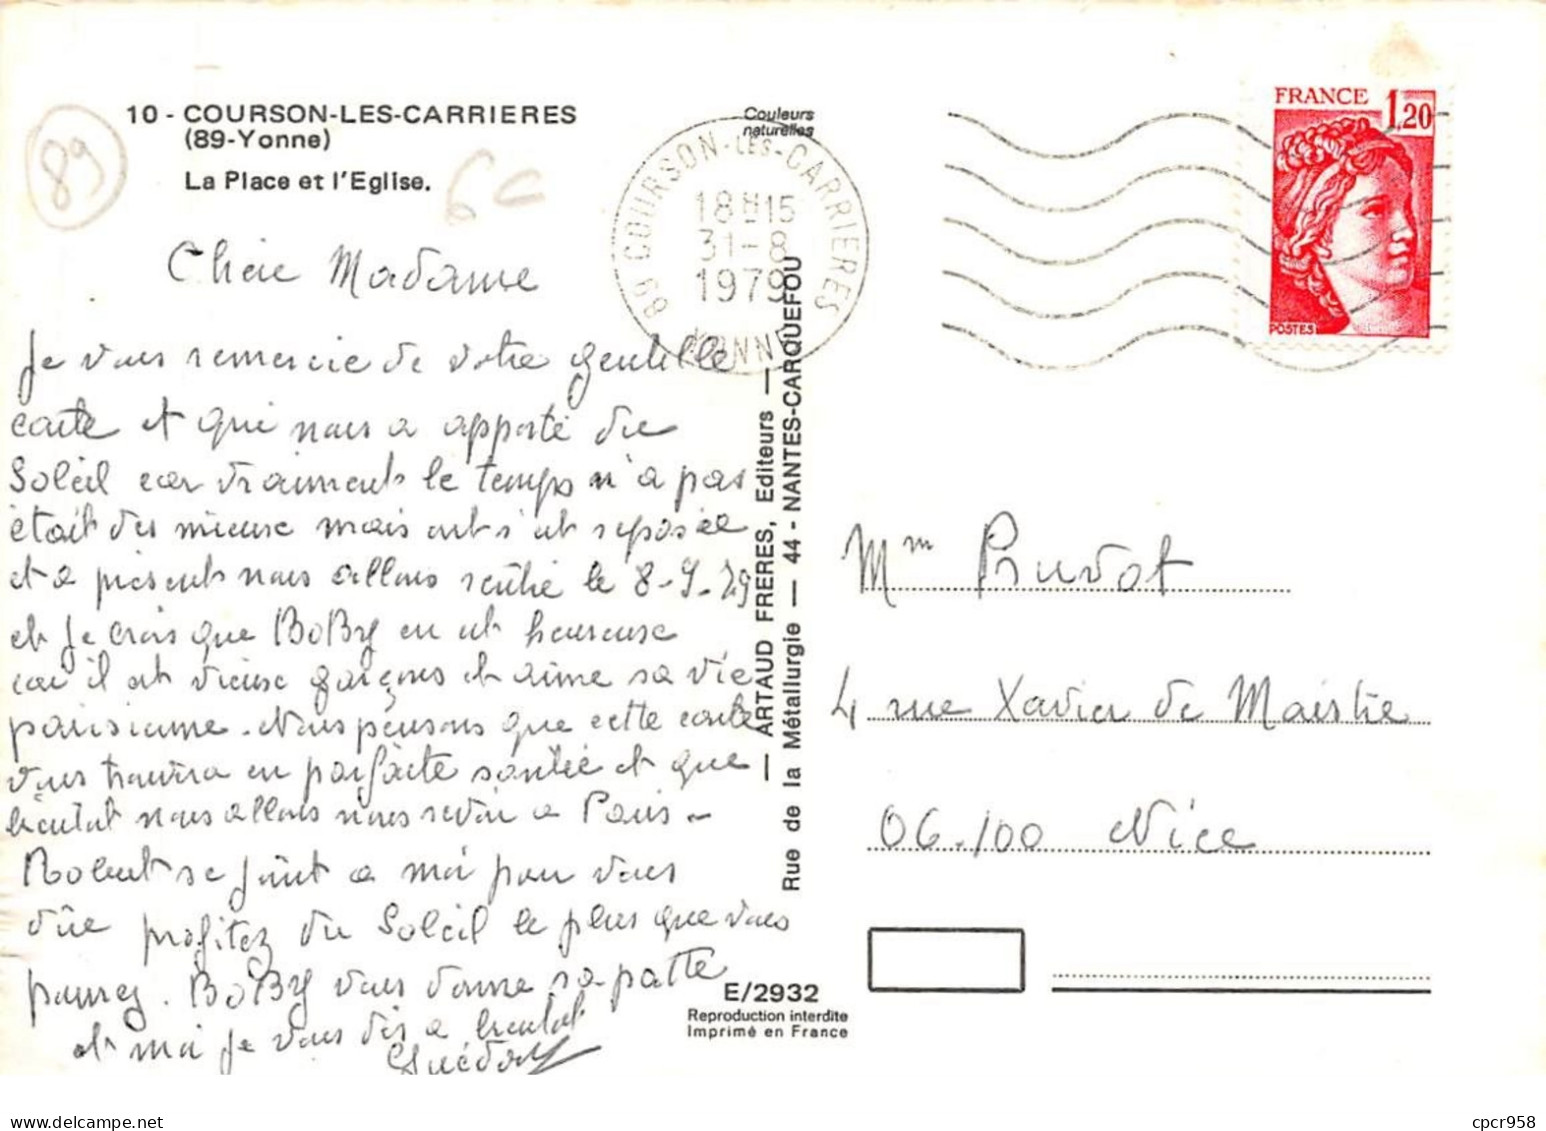 10 - COURSON-LES-CARRIERES
(89-Yonne)
La Place et l'Eglise.
89
6€
Couleurs
naturelles
89 COURSON-LES-CARRIERES
18H15
31-8
1979
YONNE
FRANCE 1,20
POSTES
Chère Madame
Je vous remercie de votre gentille
carte et qui nous a apporté du
Soleil car vraiment le temps n'a pas
était des mieux mais on s'est reposée
et a présent nous allons rentré le 8-9-79
et je crois que BoBy en est heureuse
car il est vieux garçons et aime sa vie
parisienne. Nous pensons que cette carte
vous trouvera en parfaite santée et que
bientot nous allons nous revoir a Paris -
Robert se joint a moi pour vous
dire profitez du Soleil le plus que vous
pourrez. BoBy vous donne sa patte
et moi je vous dis a bientot
— ARTAUD FRERES, Editeurs —
Rue de la Métallurgie — 44 - NANTES-CARQUEFOU
Mm Pruvot
4 rue Xavier de Maistre
06.100 Nice
E/2932
Reproduction interdite
Imprimé en France
www.delcampe.net
cpcr958